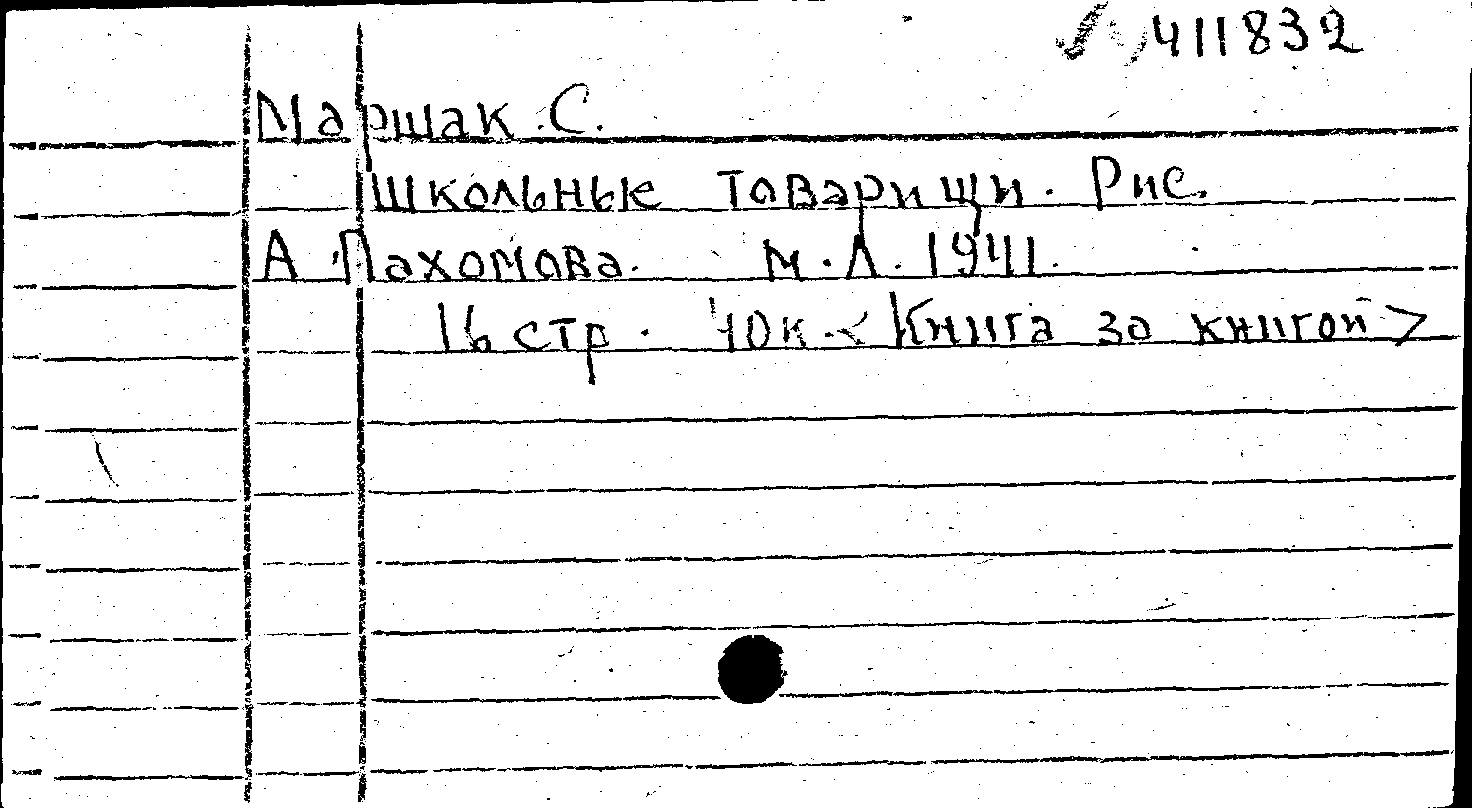 411832
Маршак С.
Школьные товарищи. Рис.
А. Пахомова. М. Л. 1941.
16 стр. 40 к. < Книга за книгой >